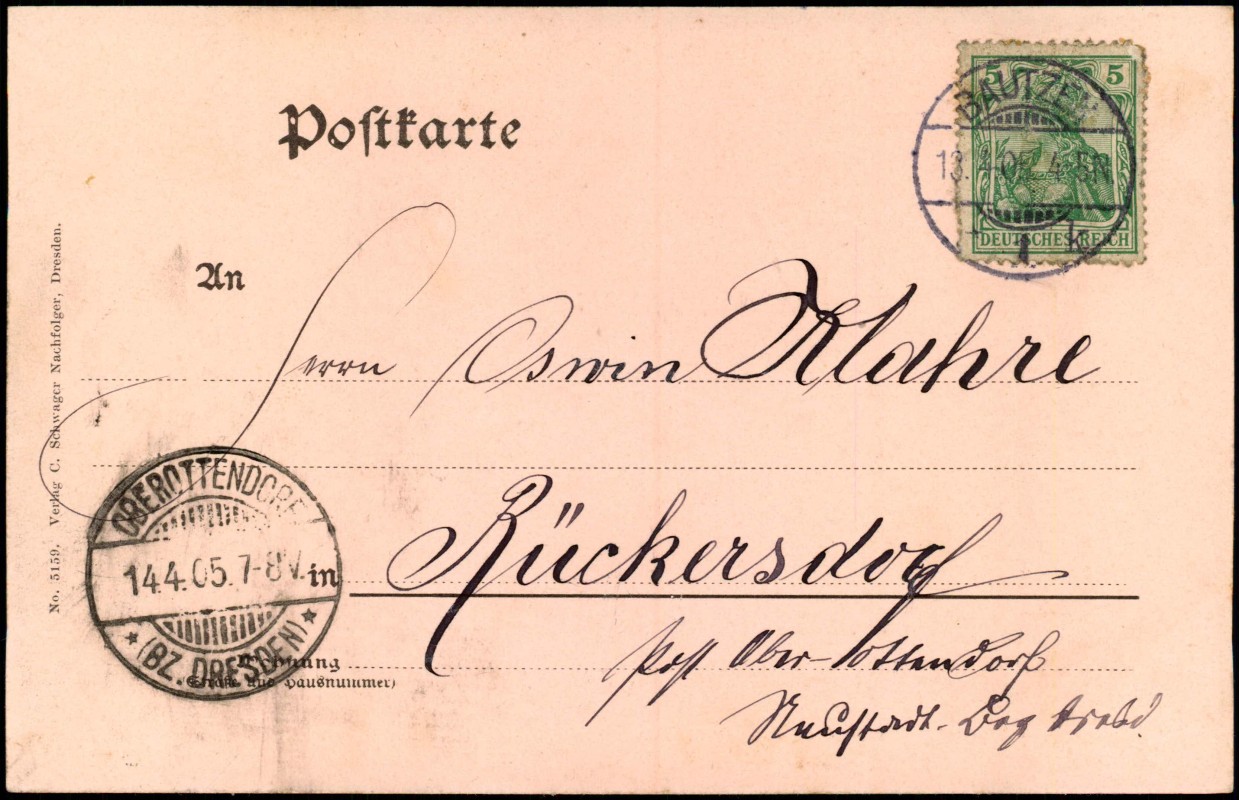 5 5
BAUTZEN.
13.4.05. 4-5N
1 k
DEUTSCHES REICH
Postkarte
An
Herrn Oswin Klahre
in Rückersdorf
Post Ober-Ottendorf
Neustadt-
Wohnung
(Straße und Hausnummer)
OBEROTTENDORF
14.4.05. 7-8V.
* (BZ. DRESDEN) *
No. 5159. Verlag C. Schwager Nachfolger, Dresden.